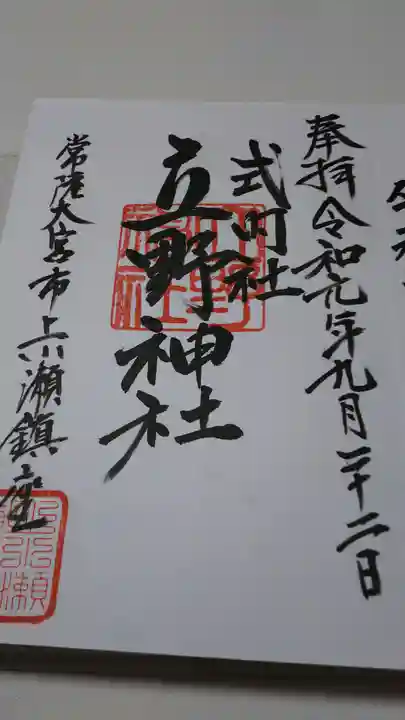 奉拝令和元年九月二十二日
式内社
立野神社
常陸大宮市上小瀬鎮座